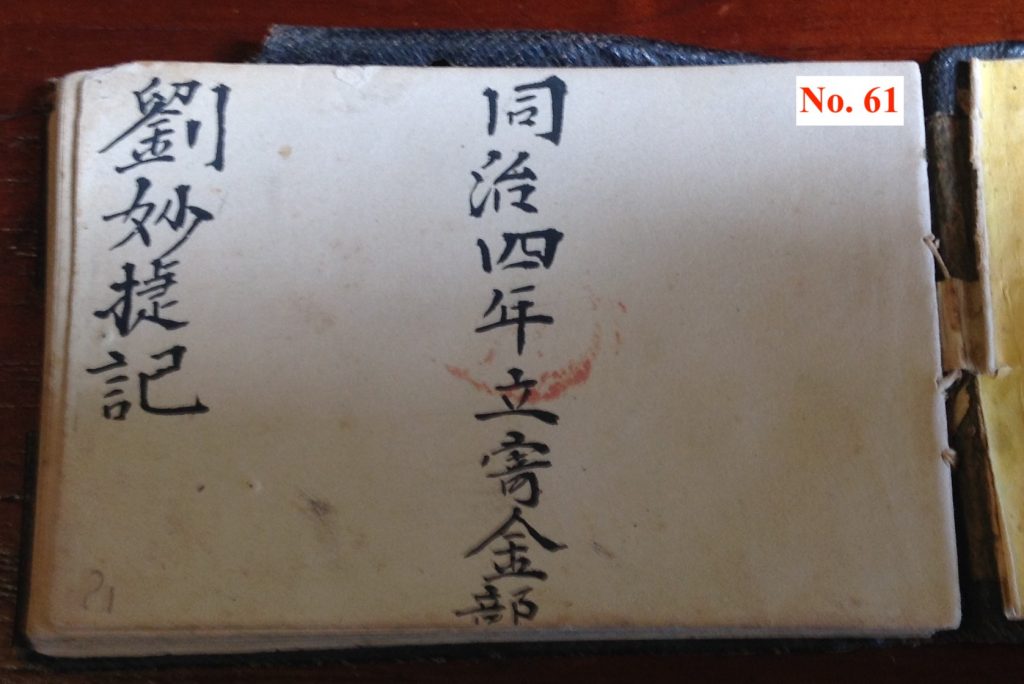 No. 61
同治四年立寄金部
劉妙捷記